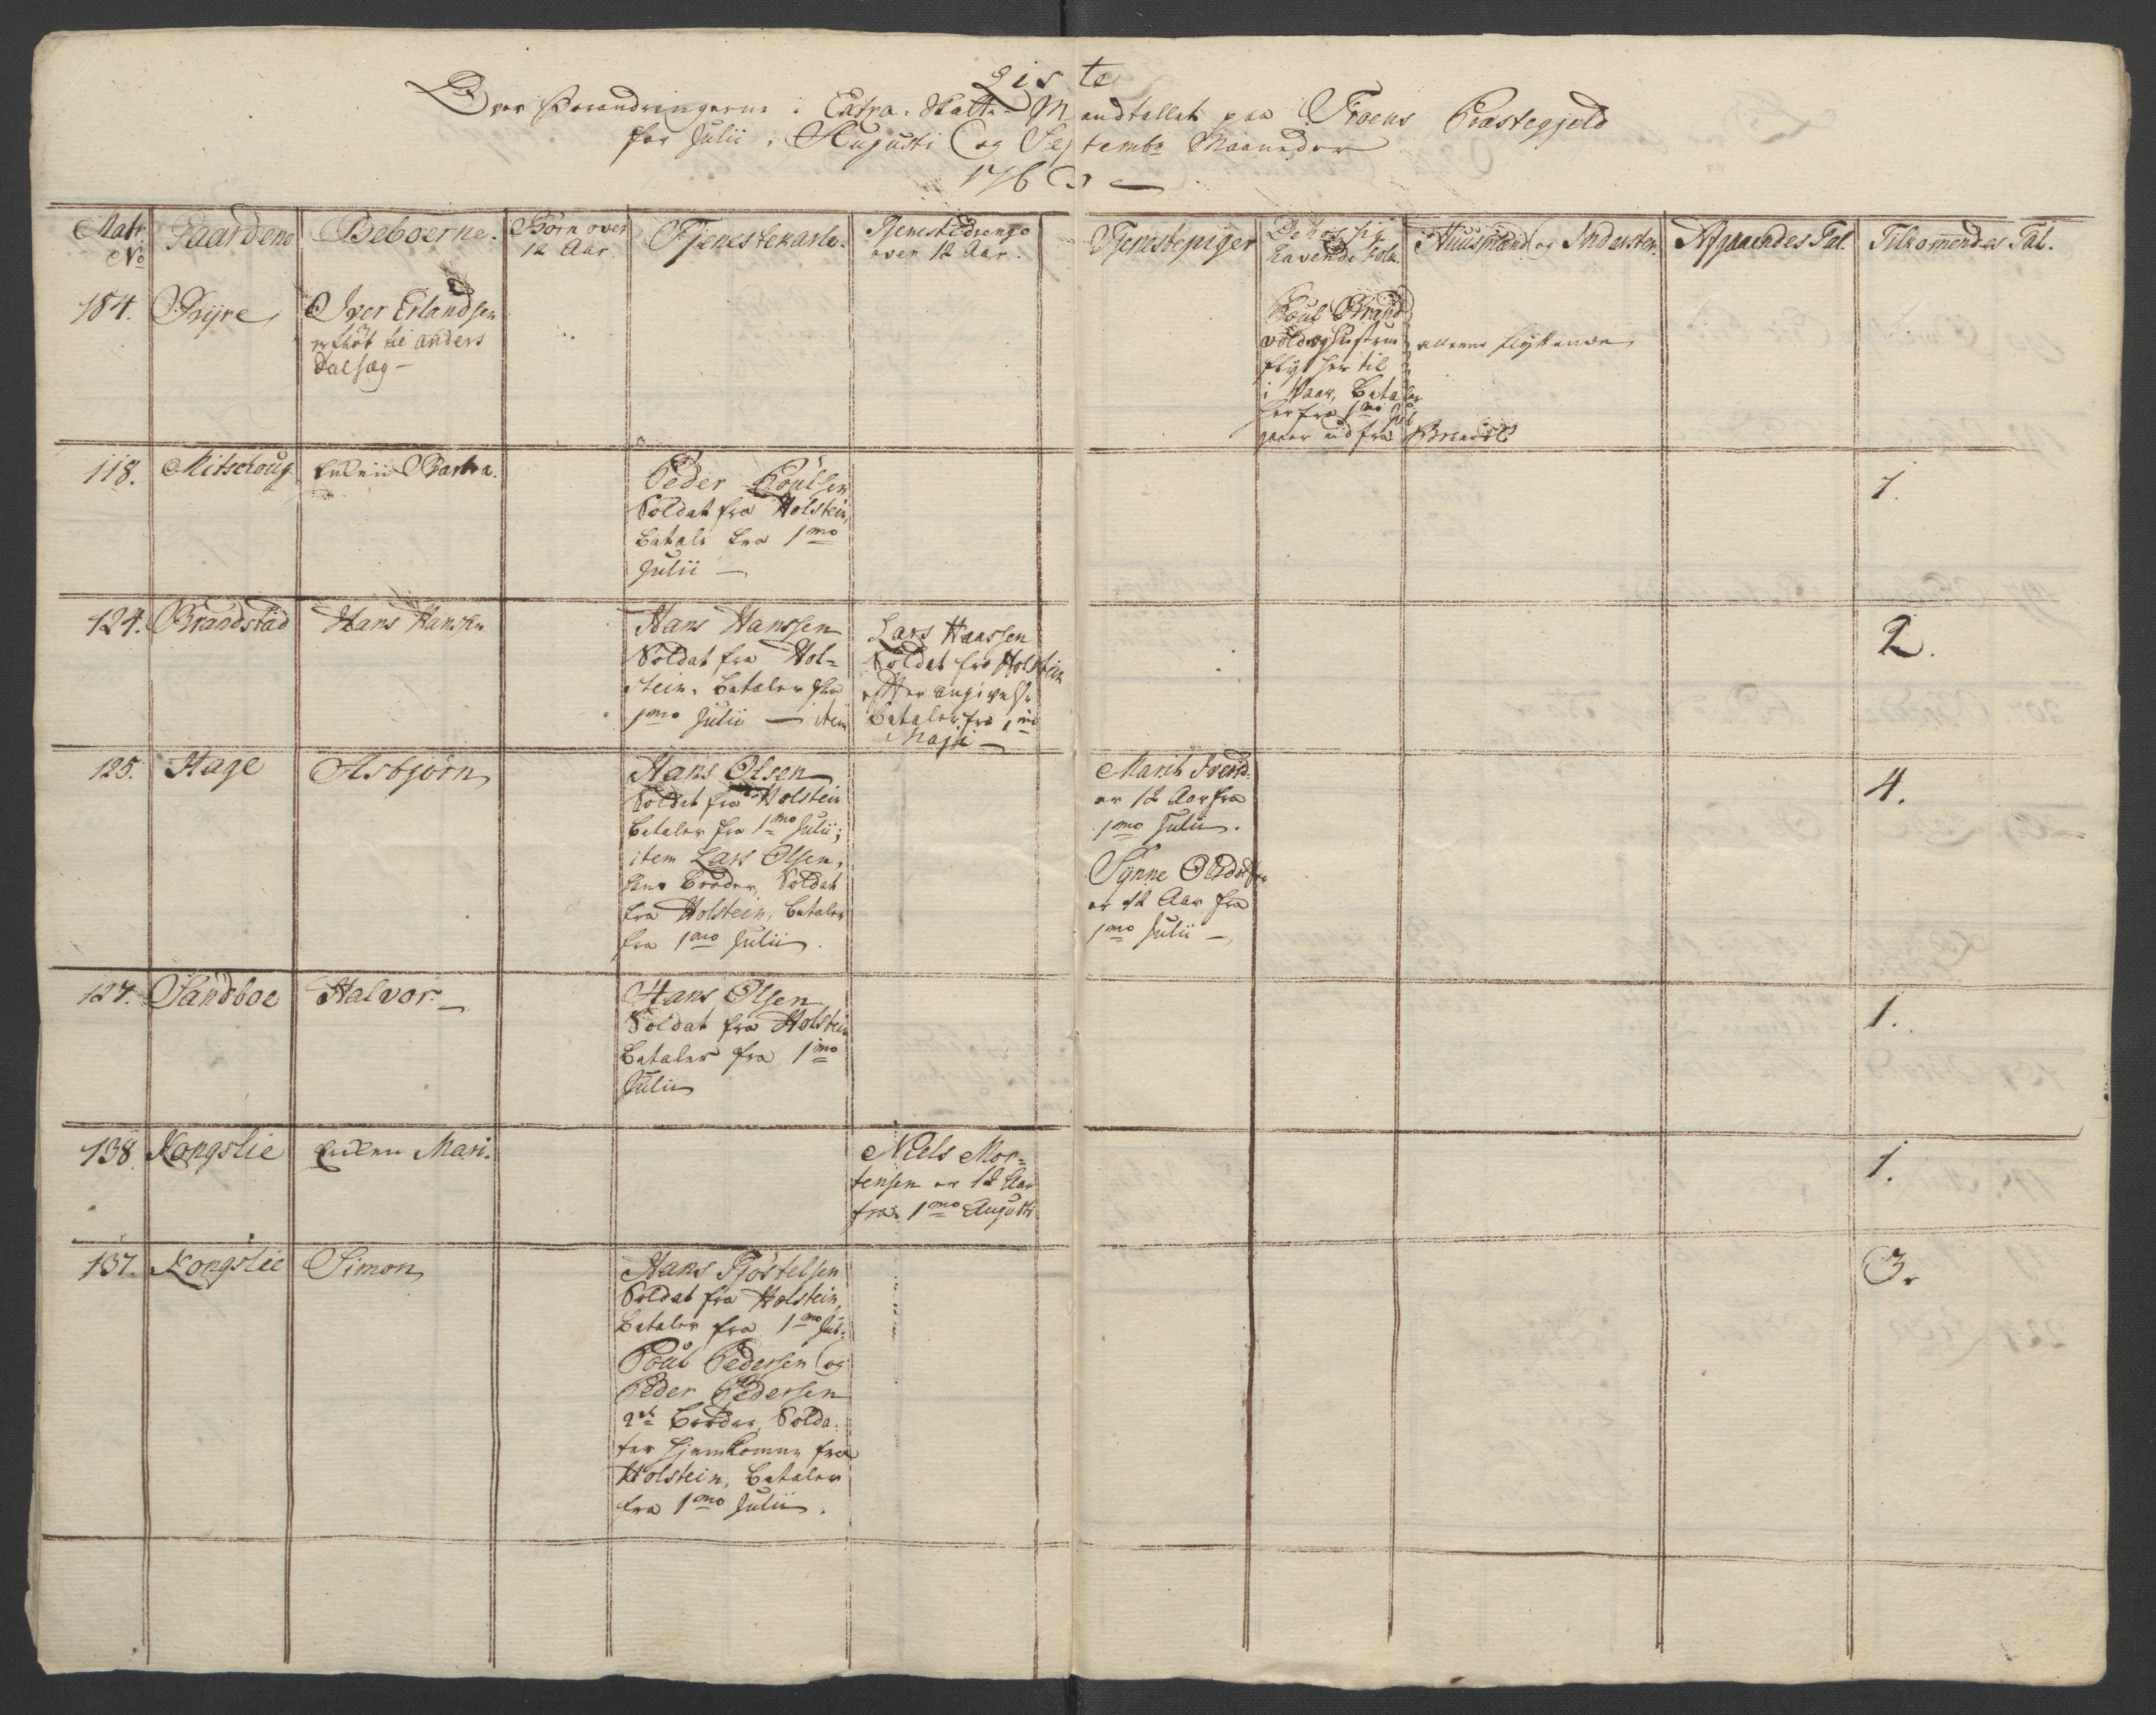 Liste
Over Forandringerne i Extra-Skatte-Mandtallet paa Froens Præstegjeld
for Julii, Augusti og Septembr Maaneder
1763
Matr. No
Gaardene
Beboerne.
Børn over 12 Aar.
Tjenestekarle.
Tjenestedrenge over 12 Aar.
Tjenestepiger
De hos sig havende Folk.
Huusmænd og Inderster.
Afgaaendes Tal.
Tilkommendes Tal.
184.
Byre
Iver Erlandsen
er
til anders
Dalsæg
Poul Brand
vold og Hustrue
her til
i Vaar, Betaler
her fra 1mo Juli
gaar ud fra
alleene flyttende
118.
Mitschoug
Enken Barbra.
Peder Poulsen
Soldat fra Holstein,
betaler fra 1mo
Julii
1.
124.
Brandstad
Hans Hansen
Hans Hanssen
Soldat fra Hol=
stein. betaler fra
1mo Julii item
Lars Hanssen
Soldat fra Holstein
efter angivelse
betaler fra 1mo
Maji
2.
125.
Hage
Asbjørn
Hans Olsen
Soldat fra Holstein
betaler fra 1mo Julii;
item Lars Olsen,
hans broder, Soldat
fra Holstein, betaler
fra 1mo Julii.
Marit Iversd.
er 12 Aar fra
1mo Julii.
Synne
er 12 Aar fra
1mo Julii
4.
127.
Sandboe
Halvor.
Hans Olsen
Soldat fra Holstein
betaler fra 1mo
Julii
1.
138.
Kongslie
Enken Mari.
Niels Mor=
tensen er 12 Aar
fra 1mo Augusti
1.
137.
Kongslie
Simon
Hans Tjøstelsen
Soldat fra Holstein,
betaler fra 1mo Jul:
Poul Pedersen og
Peder Pedersen
2de brødre, Solda=
ter hjemkomne fra
Holstein, betaler
fra 1mo Julii.
3.